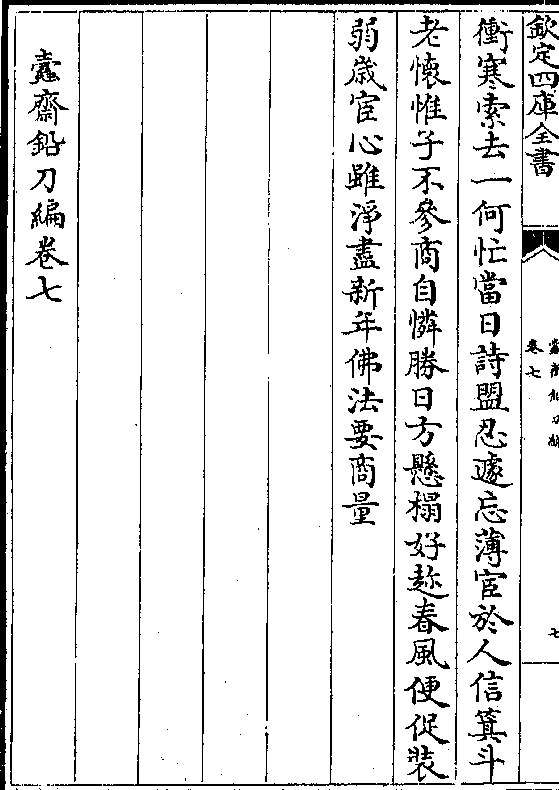 欽定四庫全書
卷七
七
衝寒索去一何忙當日詩盟忍遽忘薄宦於人信箕斗
老懷惟子不參商自憐勝日方懸榻好趂春風便促裝
弱歲宦心雖淨盡新年佛法要商量
蠧齋鉛刀編卷七